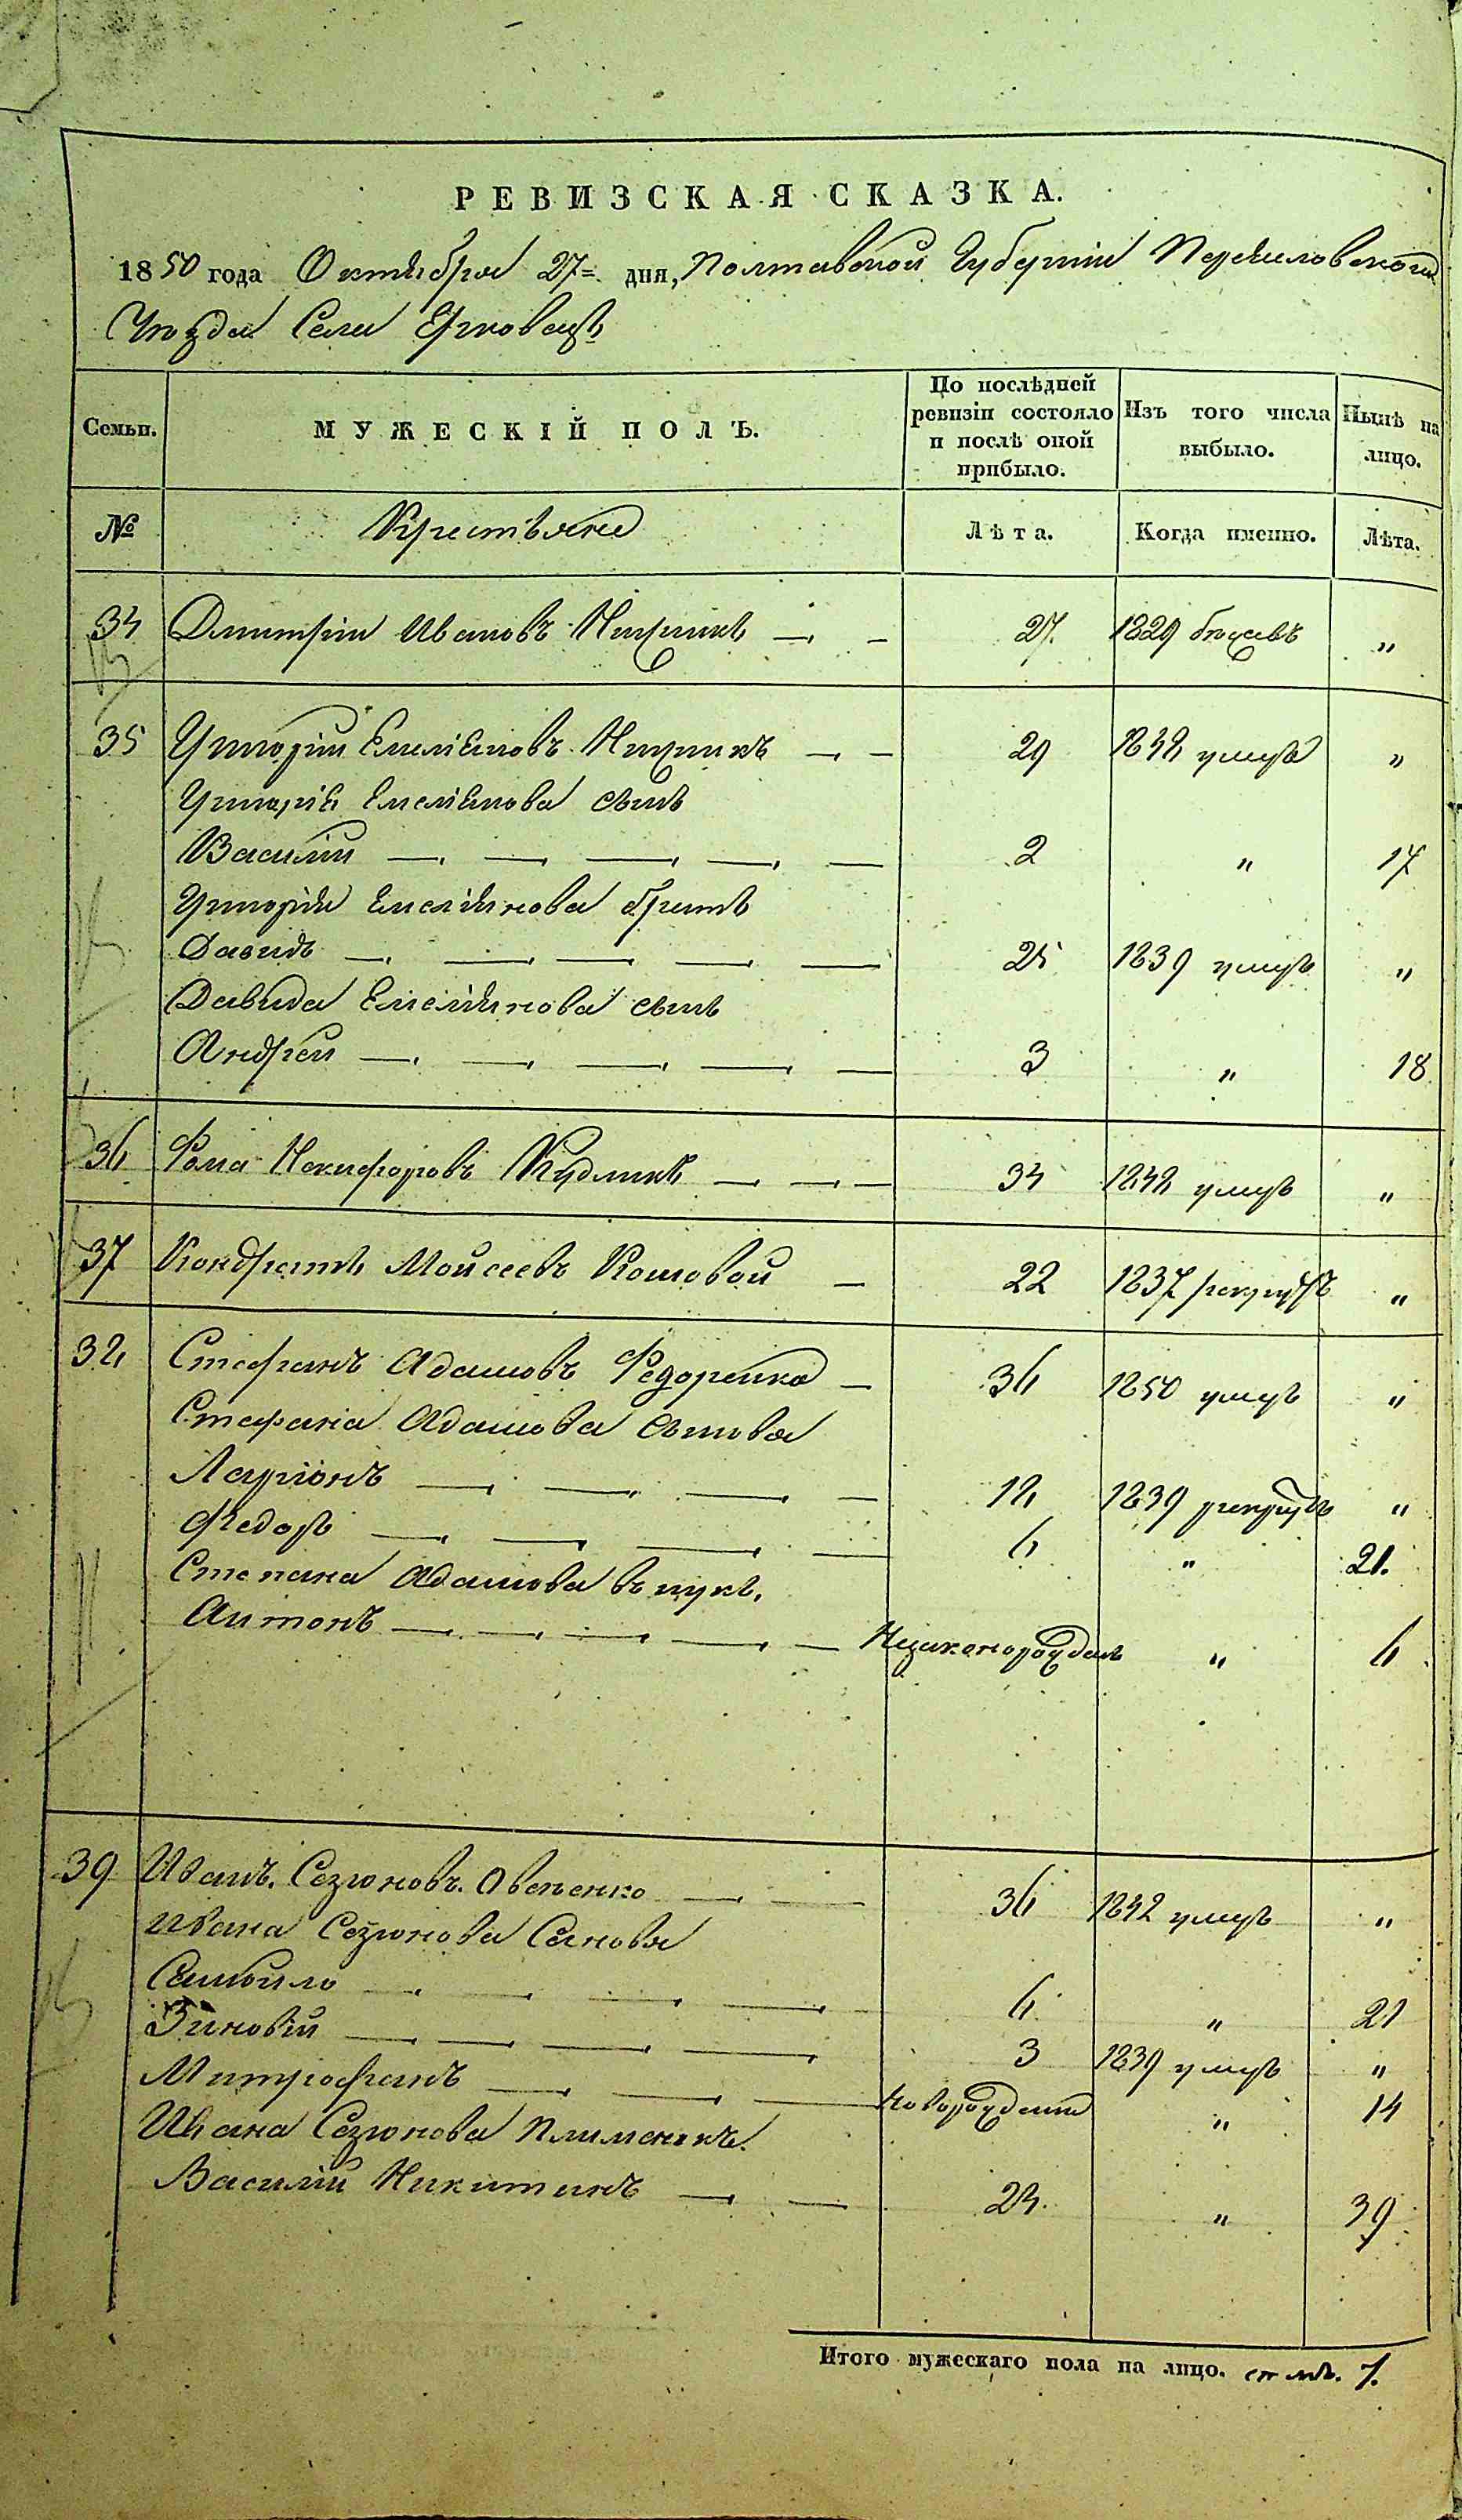 РЕВИЗСКАЯ СКАЗКА.
1850 года Октября 27= дня, Полтавской Губернии Переяславского
Уезда Села Ерковецъ
Семьи.
МУЖЕСКІЙ ПОЛЪ.
По послѣдней ревизіи состояло и послѣ оной прибыло.
Изъ того числа выбыло.
Нынѣ на лицо.
№ Крестьяне Лѣта. Когда именно. Лѣта.
34 Дмитрій Ивановъ 27. 1829 бежавъ "
35 Григорій Емеліановъ 29 1848 умеръ "
Григорія Емеліанова сынъ
Василій 2 " 17
Григорія Емеліянова братъ
Давидъ 25 1839 умеръ "
Давида Емеліянова сынъ
Андрей 3 " 18
36 Фома Никифоровъ Кудликъ 34 1848 умеръ "
37 Кондратъ Мойсеевъ Кошовой 22 1837 рекрутъ "
38 Стефанъ Адамовъ Федоренко 36 1850 умеръ "
Стефана Адамова сыновья
Ларіонъ 18 1839 рекрутъ "
Федоръ 6 " 21.
Степана Адамова внукъ.
Антонъ Незаконорожденъ " 6
39 Иванъ Созоновъ Овсіенко 36 1842 умеръ "
Ивана Созонова Сыновья
Самойло 6 " 21
Зиновій 3 1839 умеръ "
Митрофанъ Новорожденій " 14
Ивана Созонова племеникъ.
Василій Никитинъ 24. " 39
Итого мужескаго пола на лицо. 7.